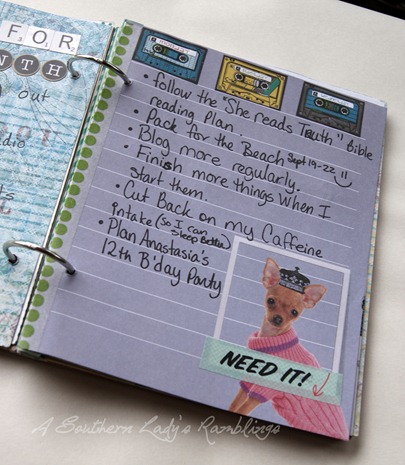 FOR
NTH
out
• follow the "She reads Truth" Bible
reading plan.
• Pack for the Beach Sept 19-22
• Blog more regularly.
• Finish more things when I
start them.
• Cut Back on my Caffeine
intake (so I can
sleep better)
• Plan Anastasia's
12th B'day Party
NEED IT!
A Southern Lady's Ramblings